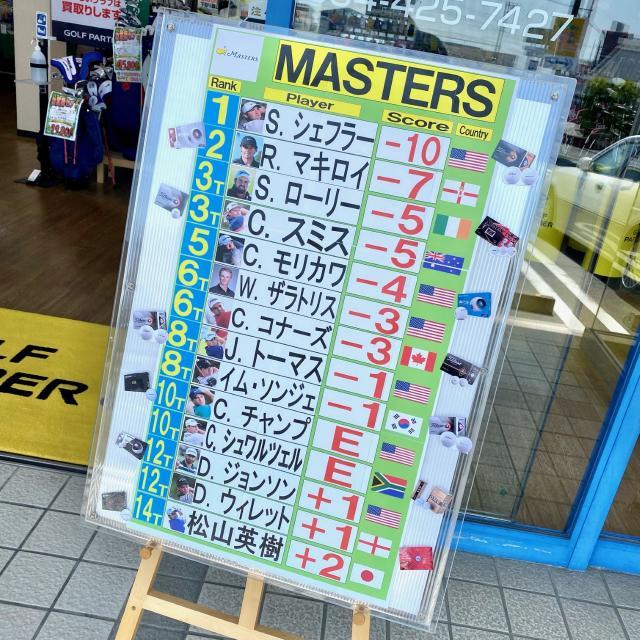 034-425-7427
買取りします
GOLF PARTNER
Masters
MASTERS
Rank Player Score Country
1 S. シェフラー -10
2 R. マキロイ -7
3T S. ローリー -5
3T C. スミス -5
5 C. モリカワ -4
6T W. ザラトリス -3
6T C. コナーズ -3
8T J. トーマス -1
8T イム・ソンジェ -1
10T C. チャンプ E
10T C. シュワルツェル E
12T D. ジョンソン +1
12T D. ウィレット +1
14T 松山英樹 +2